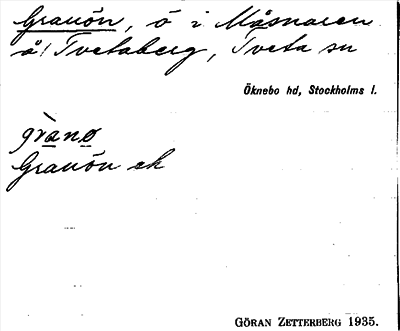 Granön, ö i Måsnaren
å! Tvetaberg, Tveta sn
Öknebo hd, Stockholms l.
grànø
Granön ek
GÖRAN ZETTERBERG 1935.